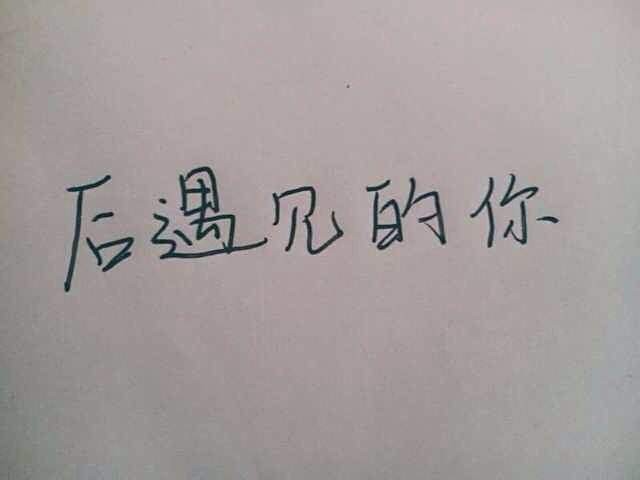 后遇见的你